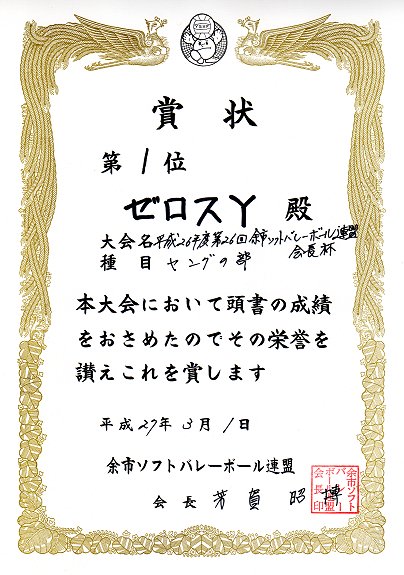 賞状
第1位
ゼロスY 殿
大会名 平成26年度第26回余市ソフトバレーボール連盟
会長杯
種目 ヤングの部
本大会において頭書の成績
をおさめたのでその栄誉を
讃えこれを賞します
平成27年3月1日
余市ソフトバレーボール連盟
会長 芳賀 昭博
余市ソフト
バレー
ボール連盟
会長印